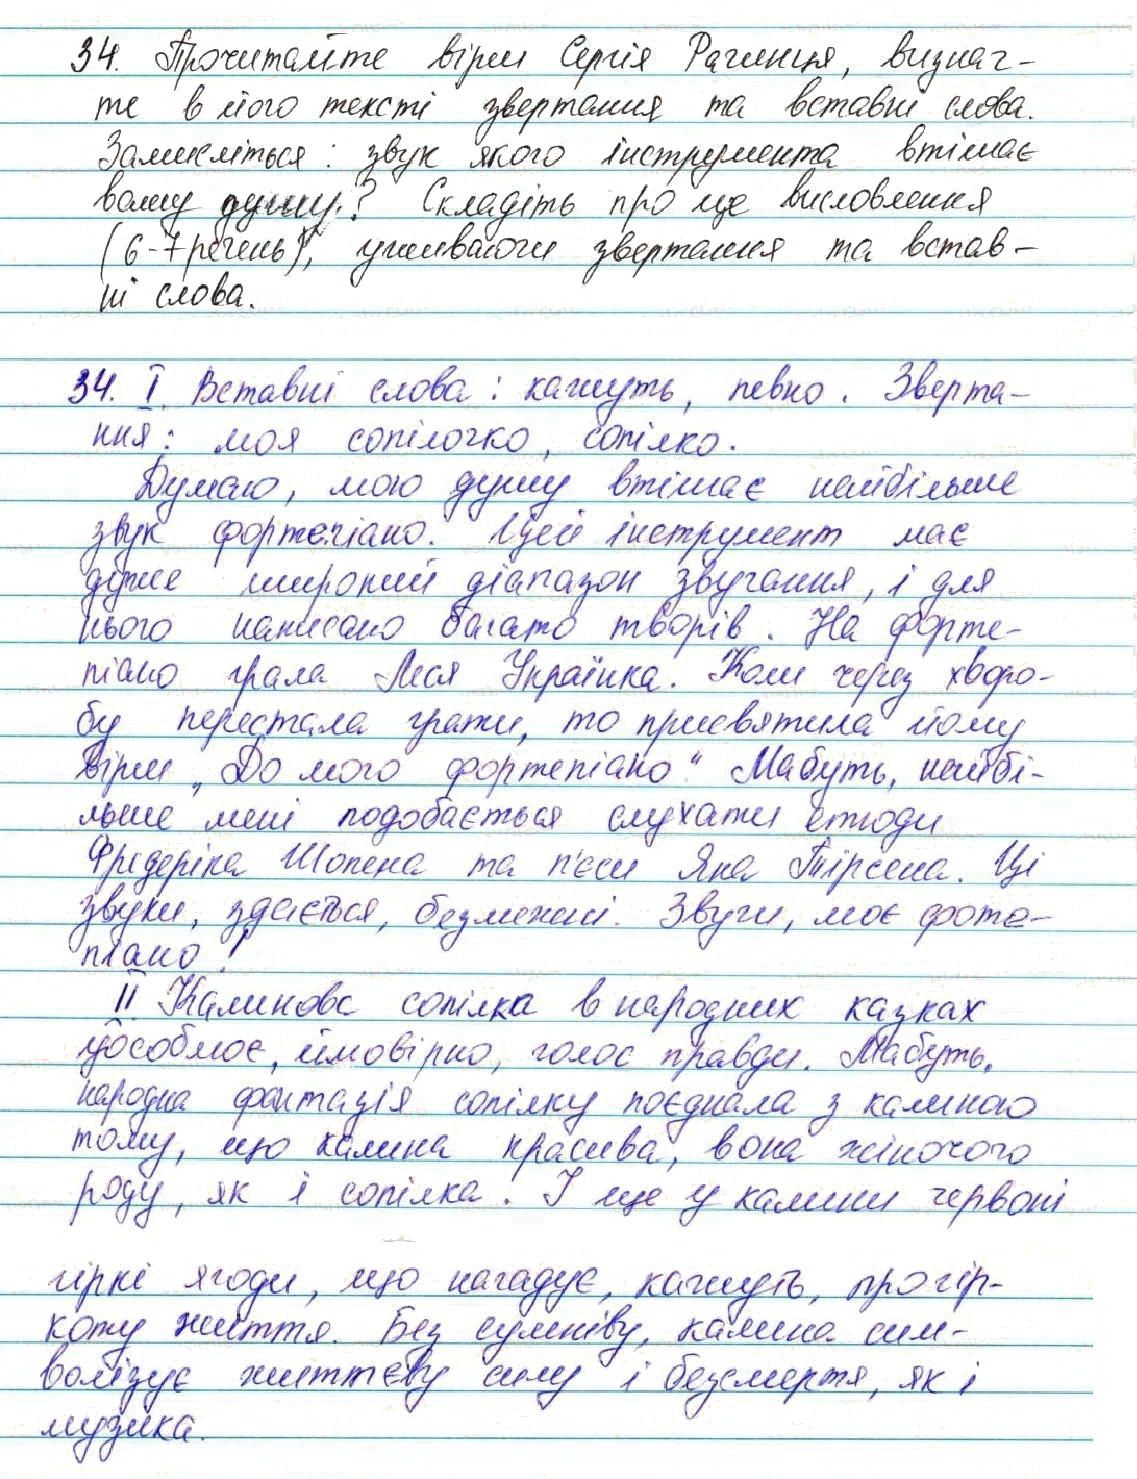 34. Прочитайте вірш Сергія Рачинця, визнач-
те в його тексті звертання та вставні слова.
Замисліться: звук якого інструмента втішає
вашу душу? Складіть про це висловлення
(6-7 речень), уживаючи звертання та встав-
ні слова.
34. I Вставні слова: кажуть, певно. Зверта-
ння: моя сопілочко, сопілко.
Думаю, мою душу втішає найбільше
звук фортепіано. Цей інструмент має
дуже широкий діапазон звучання, і для
нього написано багато творів. На форте-
піано грала Леся Українка. Коли через хворо-
бу перестала грати, то присвятила йому
вірш „До мого фортепіано" Мабуть, найбі-
льше мені подобається слухати етюди
Фредеріка Шопена та п'єси Яна Тірсена. Ці
звуки, здається, безмежні. Звучи, моє форте-
піано!
II Калинова сопілка в народних казках
уособлює, ймовірно, голос правди. Мабуть,
народна фантазія сопілку поєднала з калиною
тому, що калина красива, вона жіночого
роду, як і сопілка. І ще у калини червоні
гіркі ягоди, що нагадує, кажуть, про гір-
коту життя. Без сумніву, калина сим-
волізує життєву силу і безсмертя, як і
музика.